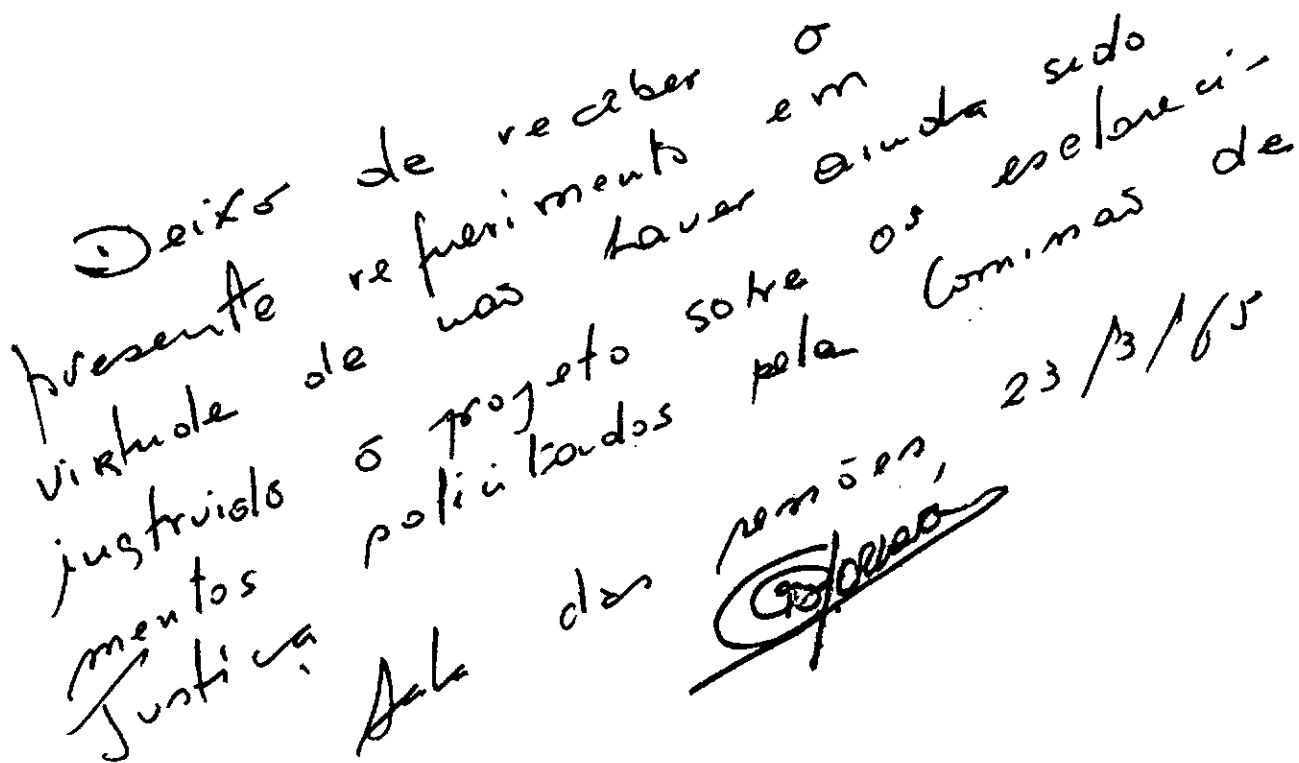 Deixo de receber o
presente requerimento em
virtude de não haver ainda sido
instruido o projeto sobre os esclareci-
mentos solicitados pela Comissão de
Justiça.
Sala das sessões, 23/3/65